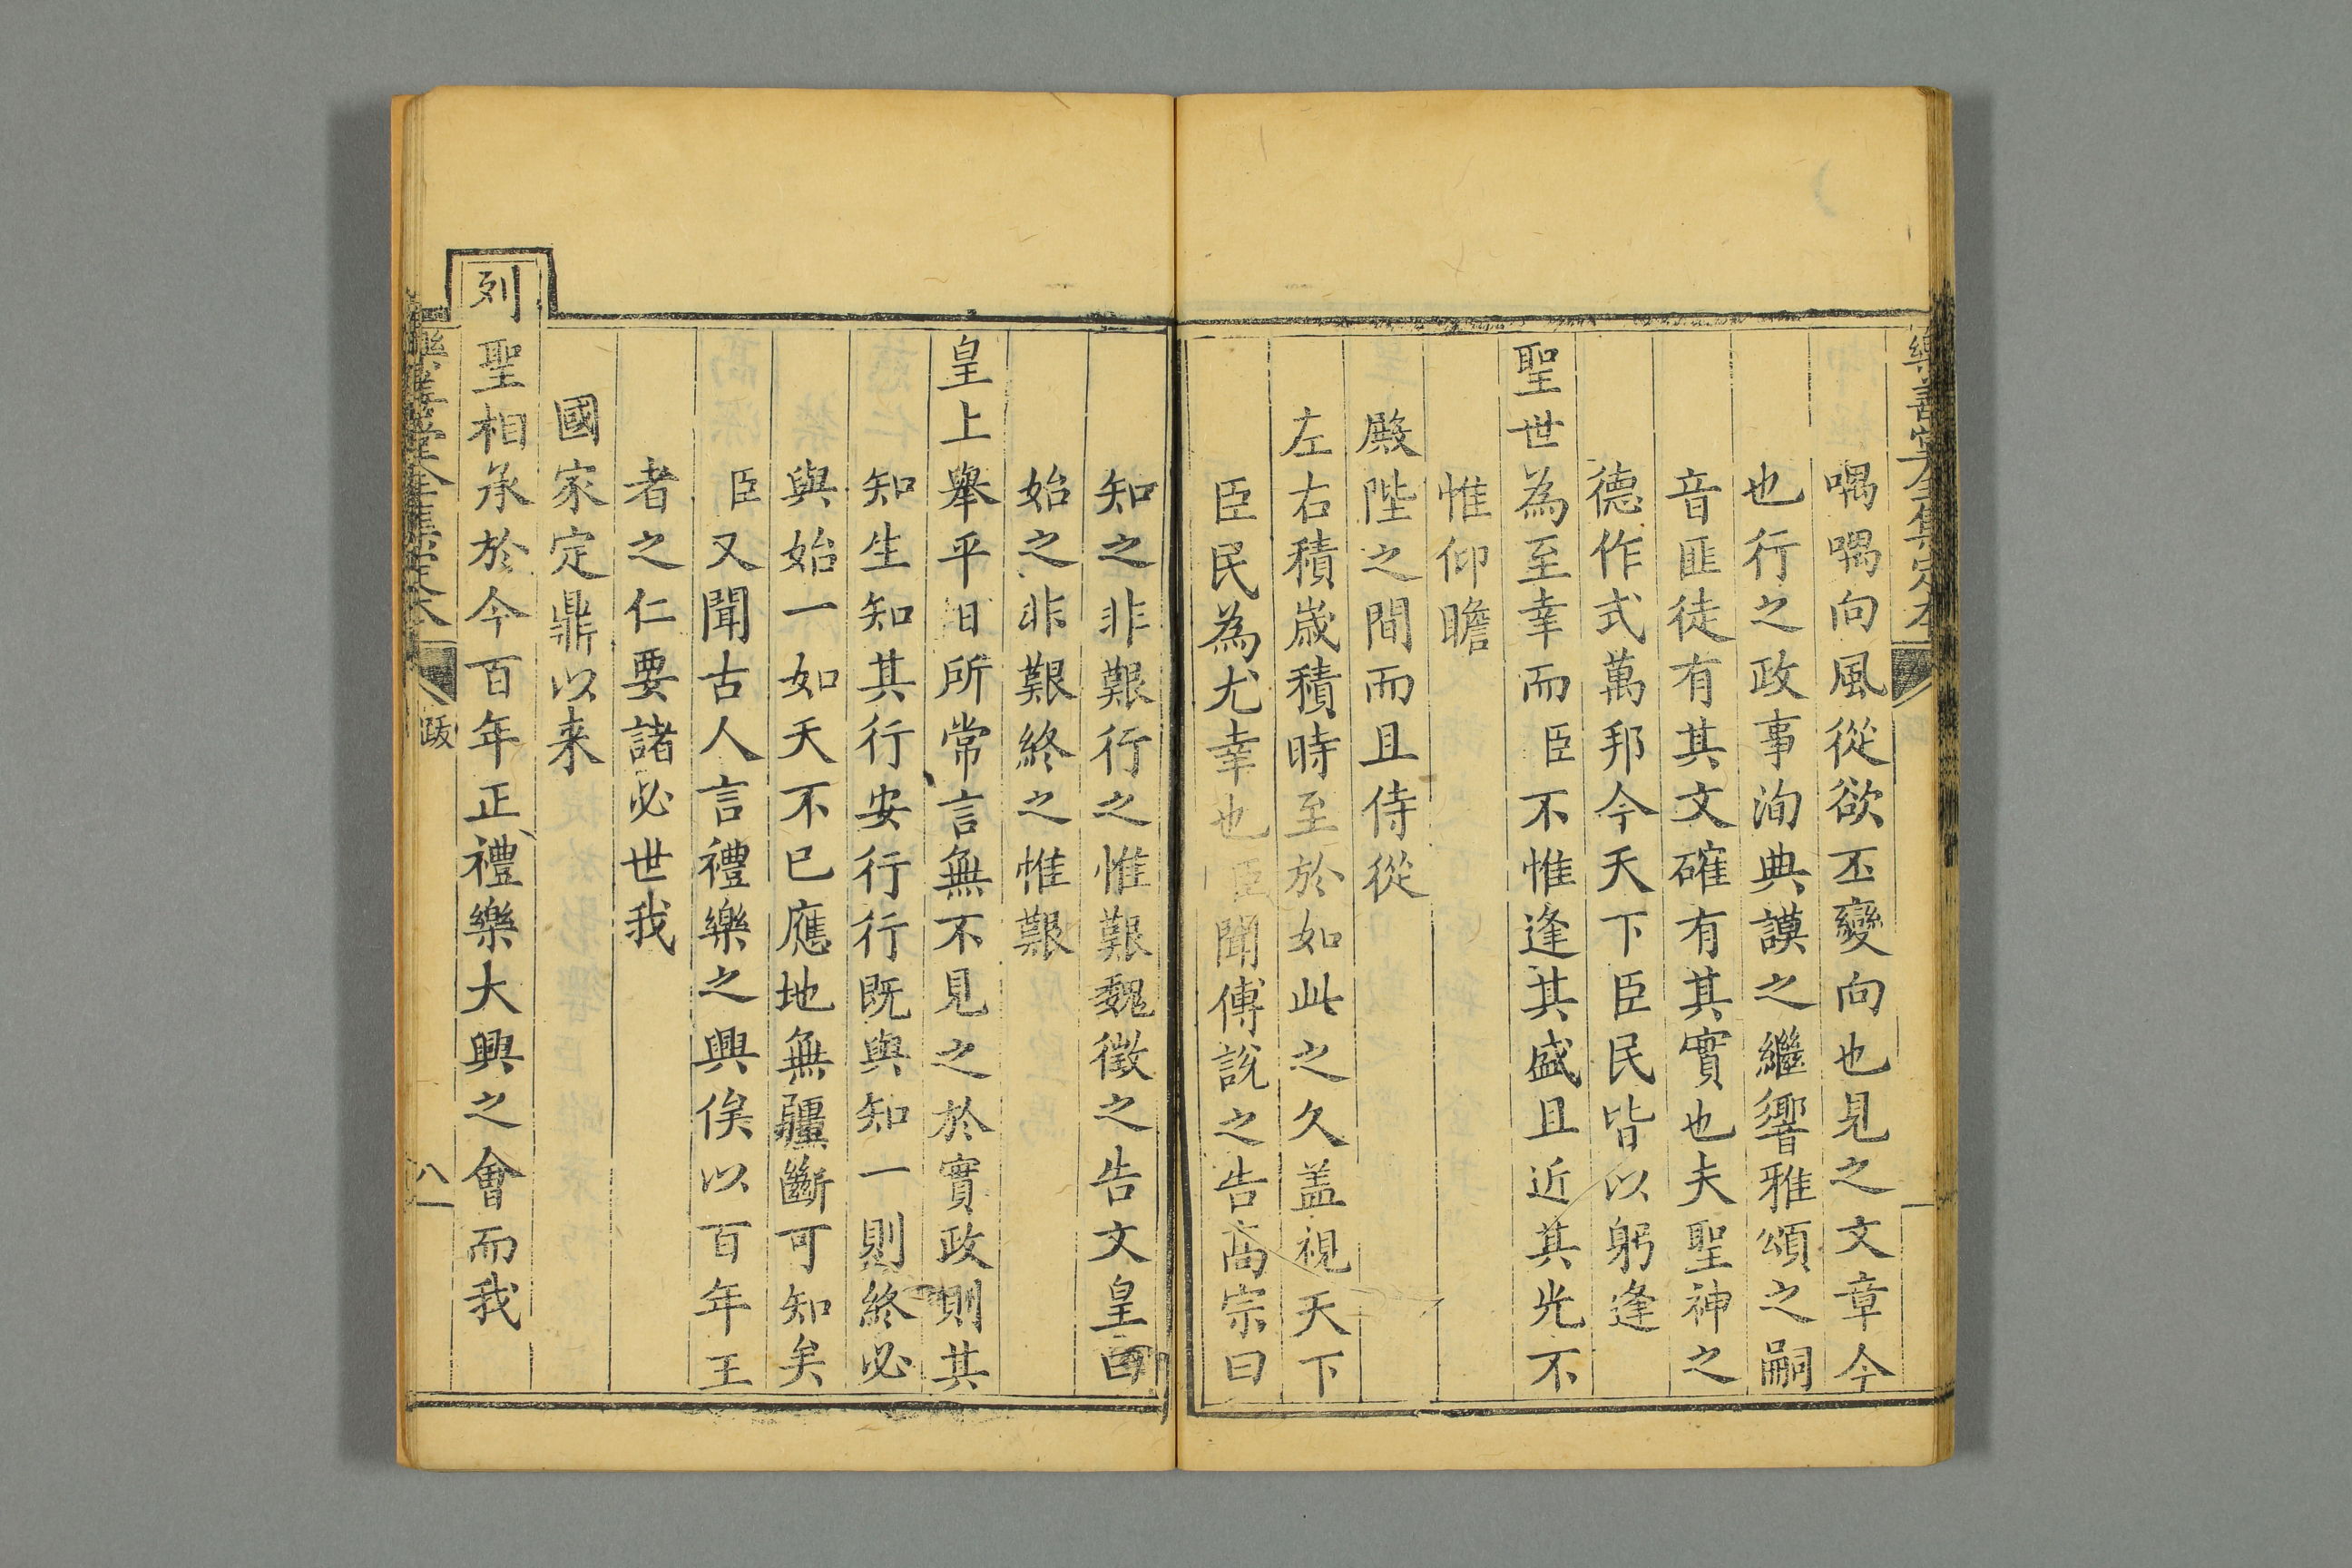 樂善堂全集定本
喁喁向風從欲丕變向也見之文章今
也行之政事洵典謨之繼響雅頌之嗣
音匪徒有其文確有其實也夫聖神之
德作式萬邦今天下臣民皆以躬逢
聖世為至幸而臣不惟逢其盛且近其光不
惟仰瞻
殿陛之間而且侍從
左右積歲積時至於如此之久盖視天下
臣民為尤幸也臣聞傅說之告高宗曰
知之非艱行之惟艱魏徵之告文皇曰
始之非艱終之惟艱
皇上舉平日所常言無不見之於實政則其
知生知其行安行行既與知一則終必
與始一如天不已應地無疆斷可知矣
臣又聞古人言禮樂之興俟以百年王
者之仁要諸必世我
國家定鼎以来
列聖相承於今百年正禮樂大興之會而我
樂善堂全集定本 跋 八